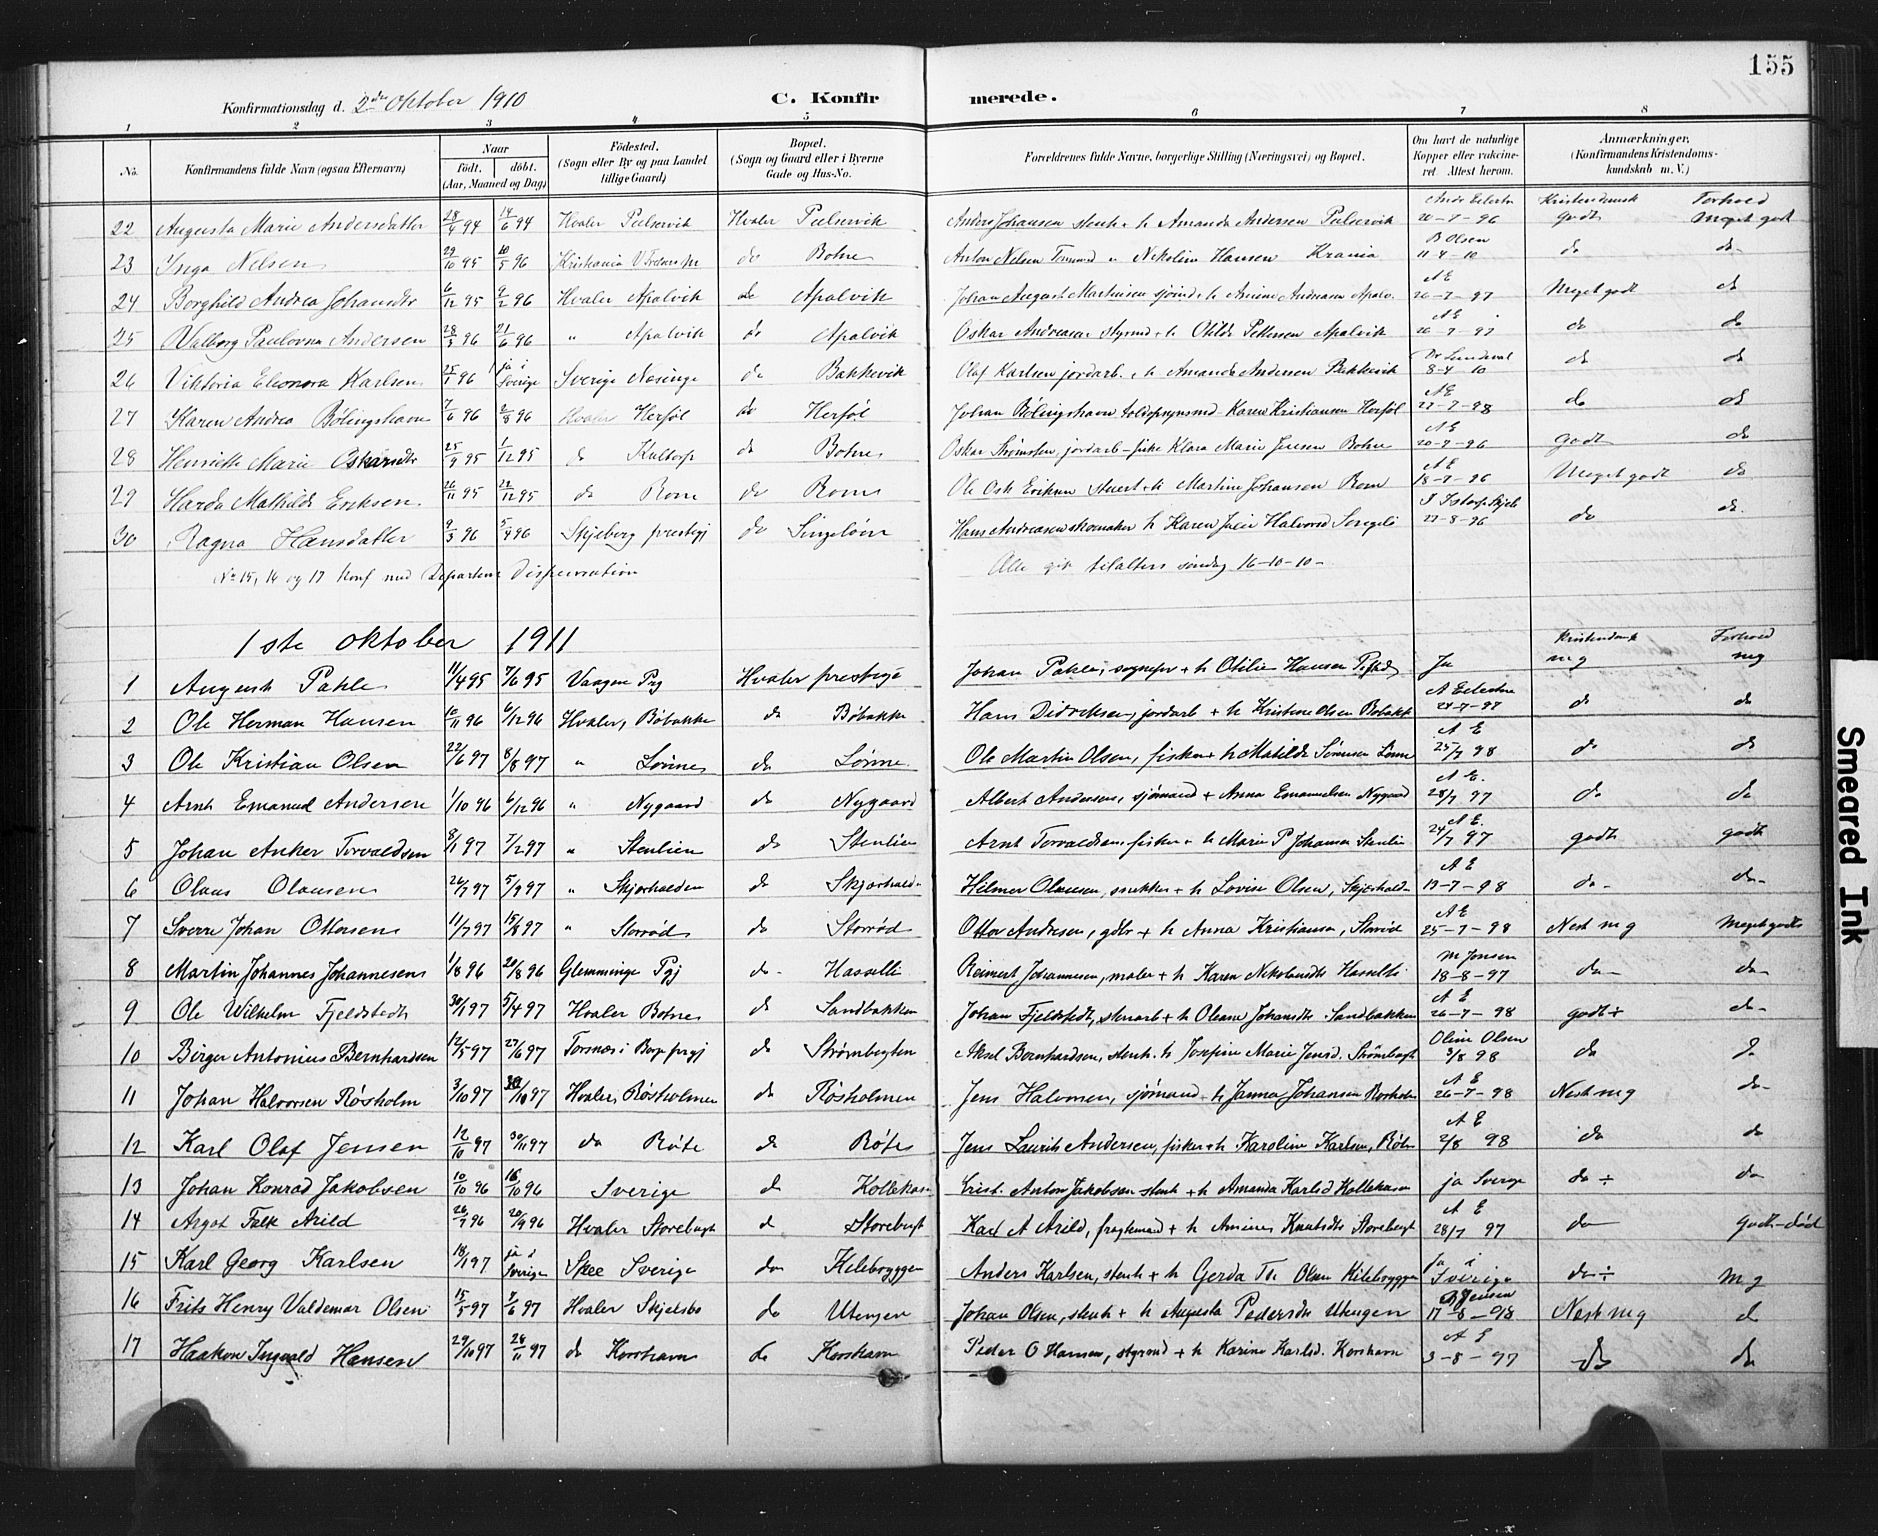 155
Konfirmationsdag d. 2den Oktober 1910 C. Konfirmerede.
1 2 3 4 5 6 7 8
No. Konfirmandens fulde Navn (ogsaa Efternavn) Naar født. døbt. (Aar, Maaned og Dag) Fødested. (Sogn eller By og paa Landet tillige Gaard) Bopæl. (Sogn og Gaard eller i Byerne Gade og Hus-No.) Forældrenes fulde Navne, borgerlige Stilling (Næringsvei) og Bopæl. Om havt de naturlige Kopper eller vakcineret. Attest herom. Anmærkninger, (Konfirmandens Kristendomskundskab m. V.)
Kristendomsk Forhold
22 Augusta Marie Andersdatter 94 14/6 94 Hvaler Hvaler Anders Johansen stenh + h Amanda Andersen 20-7-96 godt Meget godt
23 Inga Nelsen 29/10 95 10/5 96 Kristiania do Bohne Anton Nelsen Hansen Krania B Olsen 11-4-10 do do
24 Borghild Andrea Johansdtr 6/12 95 9/2 96 Hvaler Apalvik do Apalvik Johan August Martinsen sjømd + h Andreasen Apalv. A E 26-7-97 Meget godt do
25 Valborg Paulovna Andersen 28/3 96 21/6 96 " Apalvik do Apalvik Oskar Andreasen styrmd + h Otilde Pettersen Apalvik A E 26-7-97 do do
26 Viktoria Eleonora Karlsen 25/1 96 ja i Sverige Sverige Nasinge do Bakkevik Olaf Karlsen jordarb. + h Amanda Andersen Bakkevik 8-4 10 do do
27 Karen Andrea Bølingshavn 7/6 96 2/8 96 Hvaler Herføl do Herføl Johan Bølingshavn toldopsynsmd Karen Kristiansen Herføl A E 27-7-98 do do
28 Henriette Marie Oskarsdtr 25/9 95 1/12 95 do do Bohne Oskar jordarb - pike Klara Marie Jensen Bohne A E 20-7-96 godt do
29 Harda Mathilde Eriksen 26/11 95 22/12 95 do Rom do Rom Ole Eriksen + h Martine Johansen Rom A E 18-7-96 Meget godt do
30 Ragna Hansdatter 9/3 96 5/4 96 Skjeberg prestegj do Singeløen Hans Andreasen skomaker h Karen Julie 27-8-96 do do
No 15, 16 og 17 Konf med Departem Dispensation Alle gik tilalters søndag 16-10-10-
1ste oktober 1911 Kristendomsk Forhold
1 August Pahle 11/4 95 7/6 95 Vaagen Pgj Hvaler prestegj Johan Pahle, sognepr + h Otilie Hansen Ja mg mg
2 Ole Herman Hansen 10/11 96 6/12 96 Hvaler, Bøbakke do Bøbakke Hans Didriksen, jordarb + h Kristine Olsen Bøbakk 24-7-97 do do
3 Ole Kristian Olsen 22/6 97 8/8 97 " Lønne do Lønne Ole Martin Olsen, fisker + h Matilde Sørensen Lønne A E 25/7 98 do do
4 Arnt Emanuel Andersen 1/10 96 6/12 96 " Nygaard do Nygaard Albert Andersen, sjømand + Anna Emanuelsen Nygaard A E. 28/7 97 do do
5 Johan Anker Torvaldsen 8/1 97 7/2 97 " Stenlien do Stenlien Arnt Torvaldsen, fisker + h Marie P Johansen Stenlie A E. 24/7 97 godt godt
6 Olaus Olausen 26/7 97 5/9 97 " Skjærhalden do Skjærhald- Hilmer Olausen, snekker + h Lovise Olsen, Skjærhald- A E 19-7-98 do- do-
7 Sverre Johan Ottersen 11/7 97 15/8 97 " Storrød do Storrød Ottor Andresen, gdbr + h Anna Kristiansen, Storrød A E 25-7-98 Nest mg Meget godt
8 Martin Johannes Johannesen 1/8 96 20/8 96 Glemminge Pgj do- Hasselti Reinert Johannesen, maler + h Karen Nikolaisdtr Hasselti M Jensen 18-8-97 do- do-
9 Ole Wilhelm Fjeldstedt 30/1 97 5/4 97 Hvaler Bohne do Sandbakken Johan Fjeldstedt, stenarb + h Oleane Johansdtr Sandbakken A E 26-7-98 godt + do-
10 Birger Antonius Bernhardsen 12/5 97 27/6 97 Torsnes i Borge prgj do Strømbugten Aksel Bernhardsen, stenh. h Josefine Marie Jensd. Strømbugt Oline Olsen 3/8 98 do do
11 Johan Halvorsen Røsholm 3/10 97 97 Hvaler, Røsholmen do Røsholmen Jens Halvorsen, sjømand + h Janna Johansen Rosholm A E 26-7-98 Nest mg do-
12 Karl Olaf Jensen 12/10 97 30/11 97 do Røte do Røte Jens Laurits Andersen, fisker + h Karoline Karlsen, Røte A E 2/8 98 do do
13 Johan Konrad Jakobsen 10/10 96 18/10 96 Sverige do Kollekasen Anton Jakobsen stenh + h Amanda Karlsd Kollekasen ja Sverige do ÷ do
14 Argot Falk Arild 26/7 96 20/9 96 Hvaler Storebugt do Storebugt Karl A Arild, fragtemand + h Amine Knutsdtr Storebugt A E 28/7 97 do- Godt -
15 Karl Georg Karlsen 18/1 97 ja i Sverige Skee Sverige do Kilebryggen Anders Karlsen, stenh + h Gerda Olsen Kilebryggen Ja i Sverige do ÷ mg
16 Frits Henry Valdemar Olsen 15/5 97 7/6 97 Hvaler Skjelsbo do Utengen Johan Olsen, stenh + h Augusta Pedersdtr Utengen Jensen 17-8-98 Nest mg d
17 Haakon Ingvald Hansen 29/10 97 28/11 97 do Korshavn do Korshavn Peder O Hansen, styrmd + h Karine Karlsd. Korshavn A E 3-8-97 do do
Smeared Ink